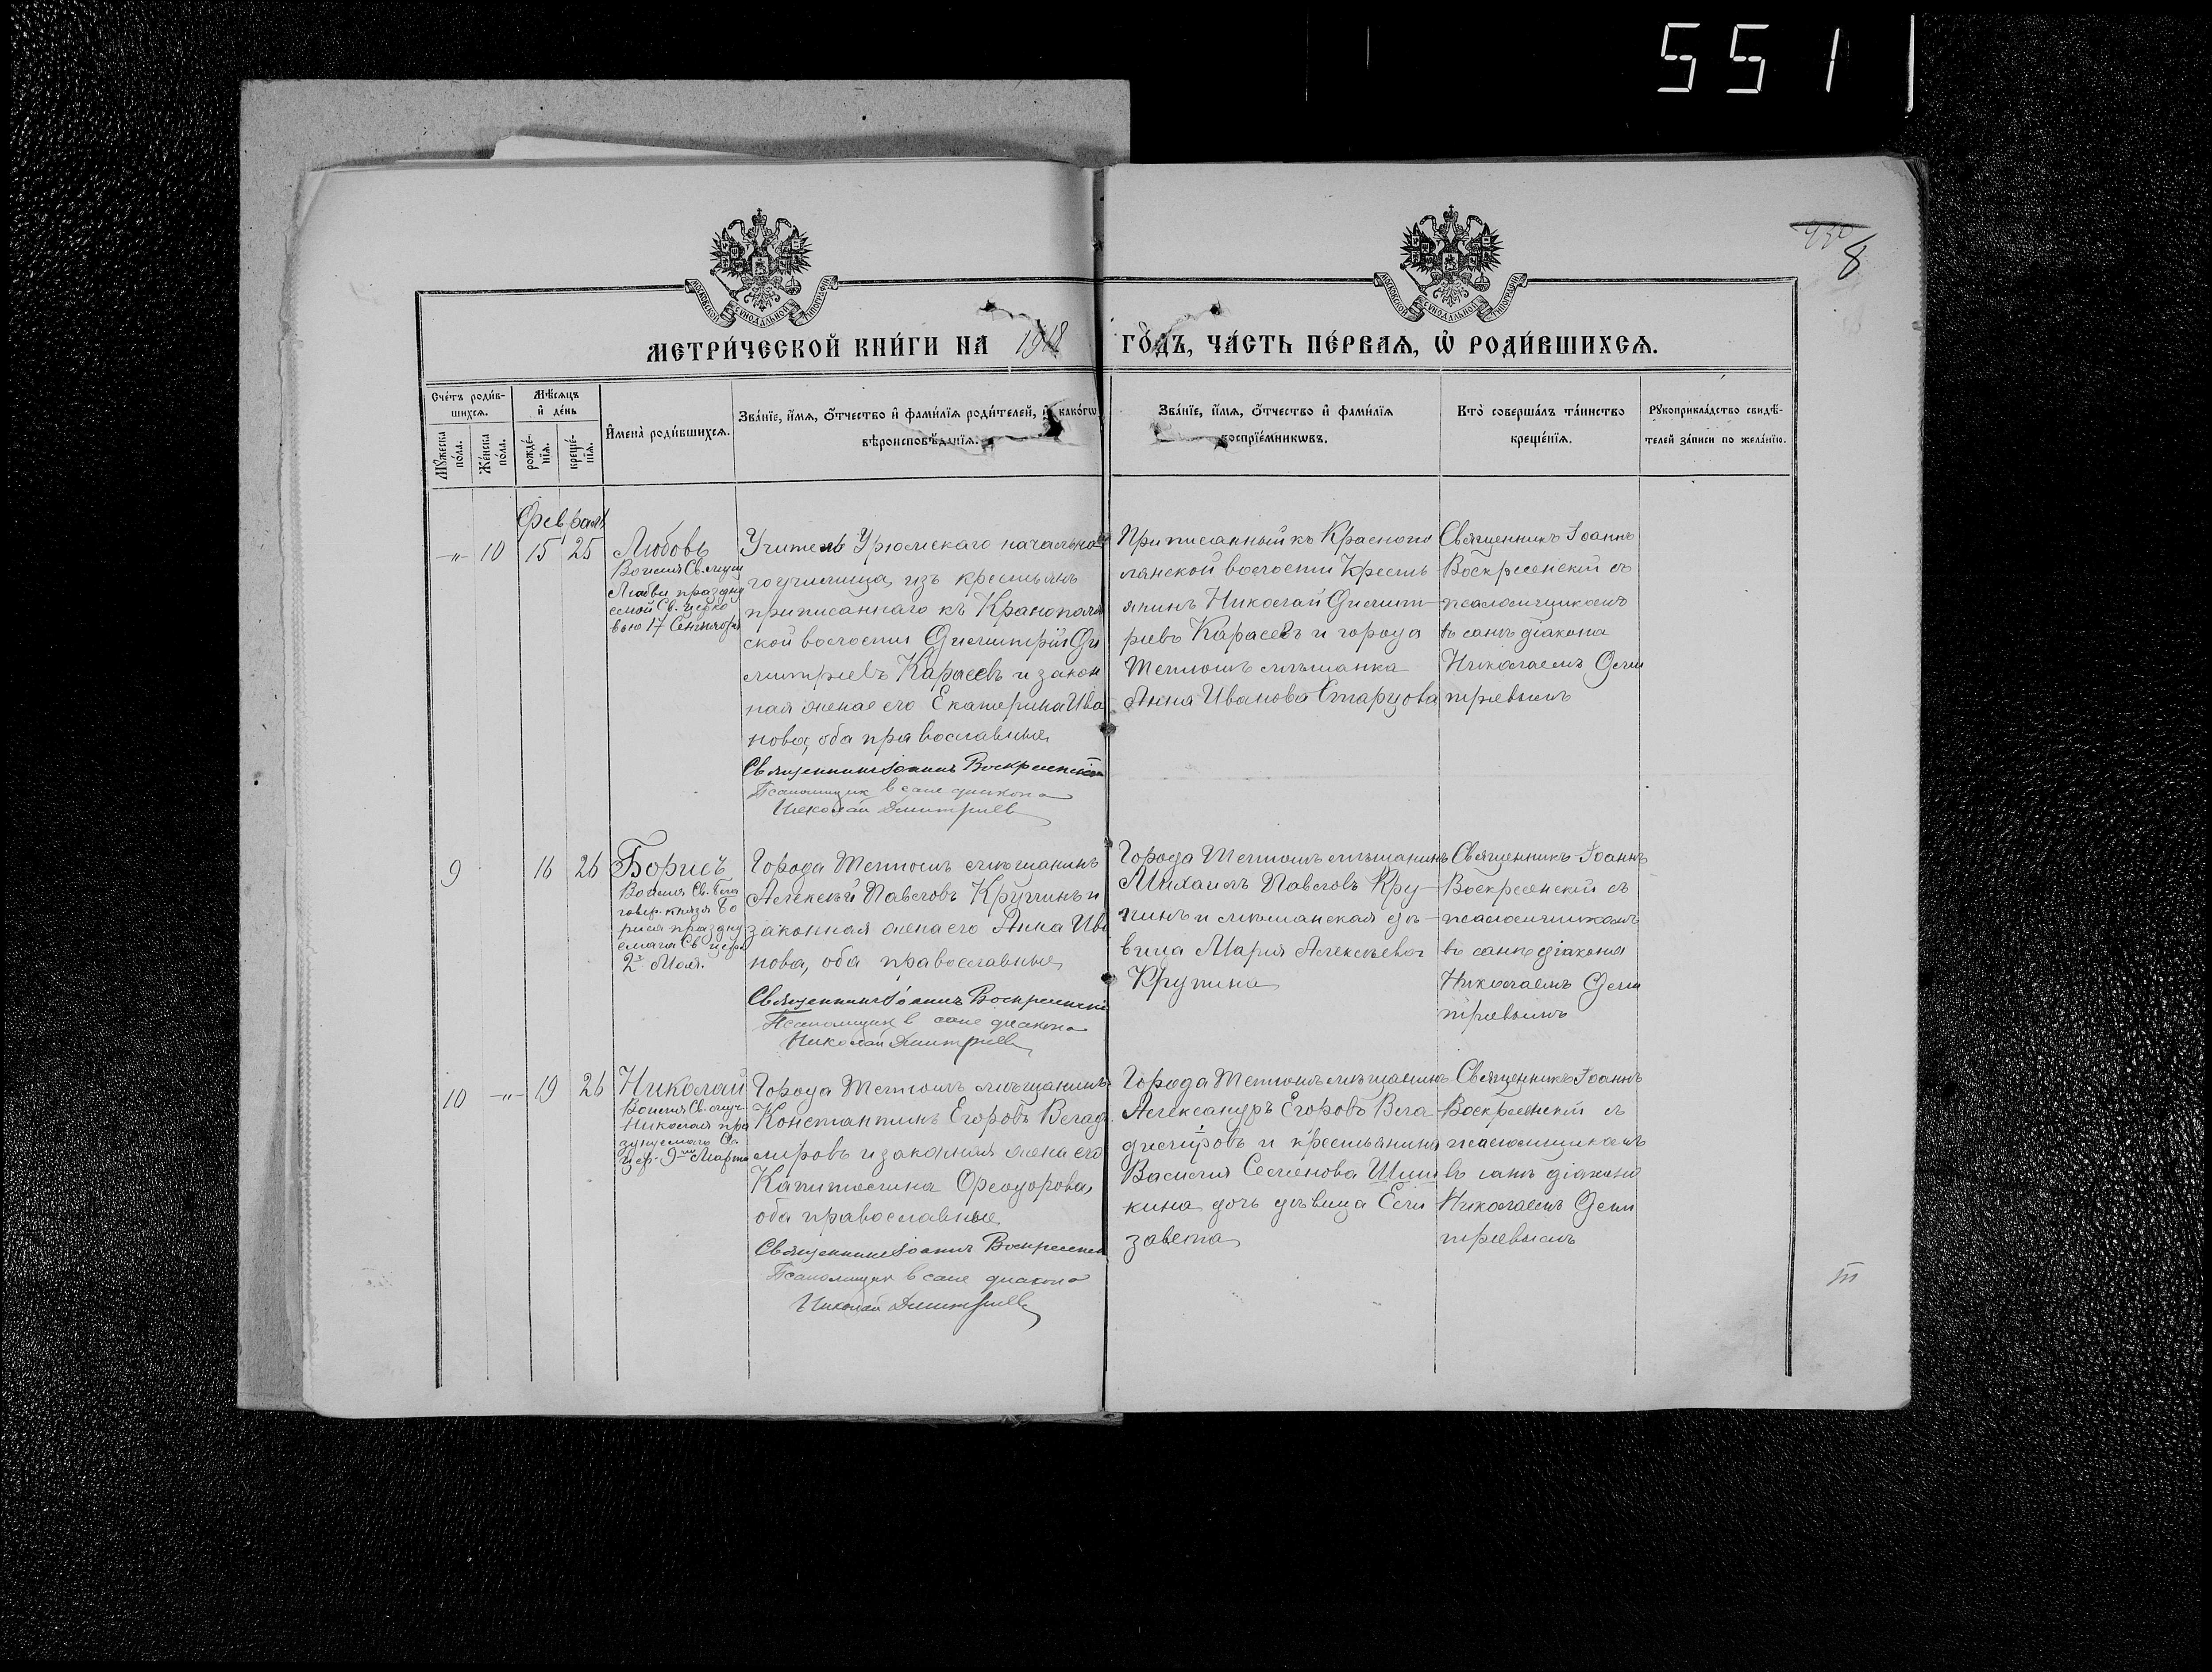 551
8
МОСКОВСКОЙ СѴНОДАЛЬНОЙ ТИПОГРАФІИ
МОСКОВСКОЙ СѴНОДАЛЬНОЙ ТИПОГРАФІИ
МЕТРИ́ЧЕСКОЙ КНИ́ГИ НА 1918 ГО́ДЪ, ЧА́СТЬ ПЕ́РВАЯ, Ѡ҆ РОДИ́ВШИХСЯ.
Сче́тъ роди́в-
шихся.
Мѣ́сяцъ
и҆ де́нь
Мꙋ́жеска
по́ла.
Же́нска
по́ла.
рожде́-
нїя.
креще́-
нїя.
И҆мена̀ роди́вшихся.
Зва́нїе, и҆́мя, ѻ҆́тчество и҆ фами́лїя роди́телей, и҆ како́гѡ
вѣроисповѣ́данїя.
Зва́нїе, и҆́мя, ѻ҆́тчество и҆ фами́лїя
воспрїе́мникѡвъ.
Кто̀ соверша́лъ та́инство
креще́нїя.
Рꙋкоприкла́дство свидѣ́-
телей за́писи по жела́нїю.
Февраль
-"- 10 15 25
Любовь
Во имя Св. муч
Любви праздну
емой Св. Церко
вью 17 Сентября
Учитель Урюмскаго начально
го училища, изъ крестьянъ
приписаннаго къ Краснополян
ской волости Димитрій Ди
митріевъ Карасевъ и закон
ная жена его Екатерина Ива
нова, оба православные
Священникъ Іоаннъ Воскресенскій
Псаломщик в сане диакона
Николай Дмитриев
Приписанный къ Краснопо
лянской волости Кресть
янинъ Николай Димит-
ріевъ Карасевъ и города
Тетюшъ мѣщанка
Анна Иванова Старцова
Священникъ Іоаннъ
Воскресенскій съ
псаломщикомъ
въ санѣ діакона
Николаемъ Дими
тріевымъ
9 16 26
Борисъ
Во имя Св. Бла
говер. князя Бо
риса праздну
емаго Св. Церк
2го Мая.
Города Тетюшъ мѣщанинъ
Алексѣй Павловъ Крупинъ и
законная жена его Анна Ива
нова, оба православные
Священникъ Іоаннъ Воскресенскій
Псаломщик в сане диакона
Николай Дмитриев
Города Тетюшъ мѣщанинъ
Михаилъ Павловъ Кру-
пинъ и мѣщанская дѣ-
вица Мария Алексѣева
Крупина
Священникъ Іоаннъ
Воскресенскій съ
псаломщикомъ
въ санѣ діакона
Николаемъ Дими
тріевымъ
10 -"- 19 26
Николай
Во имя Св. муч.
Николая пра
зднуемаго Св.
Цер. 9го Марта
Города Тетюшъ мѣщанинъ
Константинъ Егоровъ Влади
міровъ и законная жена его
Капитолина Феодорова,
оба православные
Священникъ Іоаннъ Воскресенск
Псаломщик в сане диакона
Николай Дмитриев
Города Тетюшъ мѣщанинъ
Александръ Егоровъ Вла-
диміровъ и крестьянина
Василия Семенова
кина дочь дѣвица Ели
завета
Священникъ Іоаннъ
Воскресенскій съ
псаломщикомъ
въ санѣ діакона
Николаемъ Дими
тріевымъ